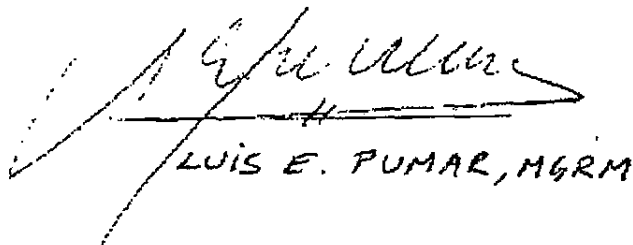 LUIS E. PUMAR, MGRM